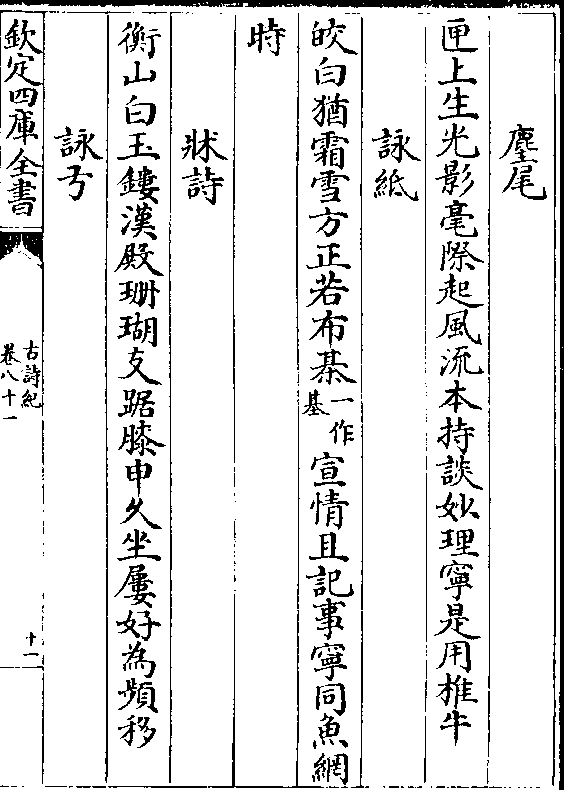 麈尾
匣上生光影毫際起風流本持談妙理寧是用椎牛
詠紙
皎白猶霜雪方正若布棊一作基宣情且記事寧同魚網
時
牀詩
衡山白玉鏤漢殿珊瑚支踞膝申久坐屢好為頻移
詠弓
欽定四庫全書
古詩紀
卷八十一
十一